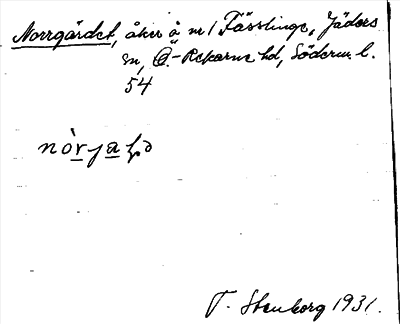 Norrgärdet, åker å nr 1 Fässlinge, Jäders
sn, Ö.-Rekarne hd, Söderm. l.
54
T. Stenborg 1931.